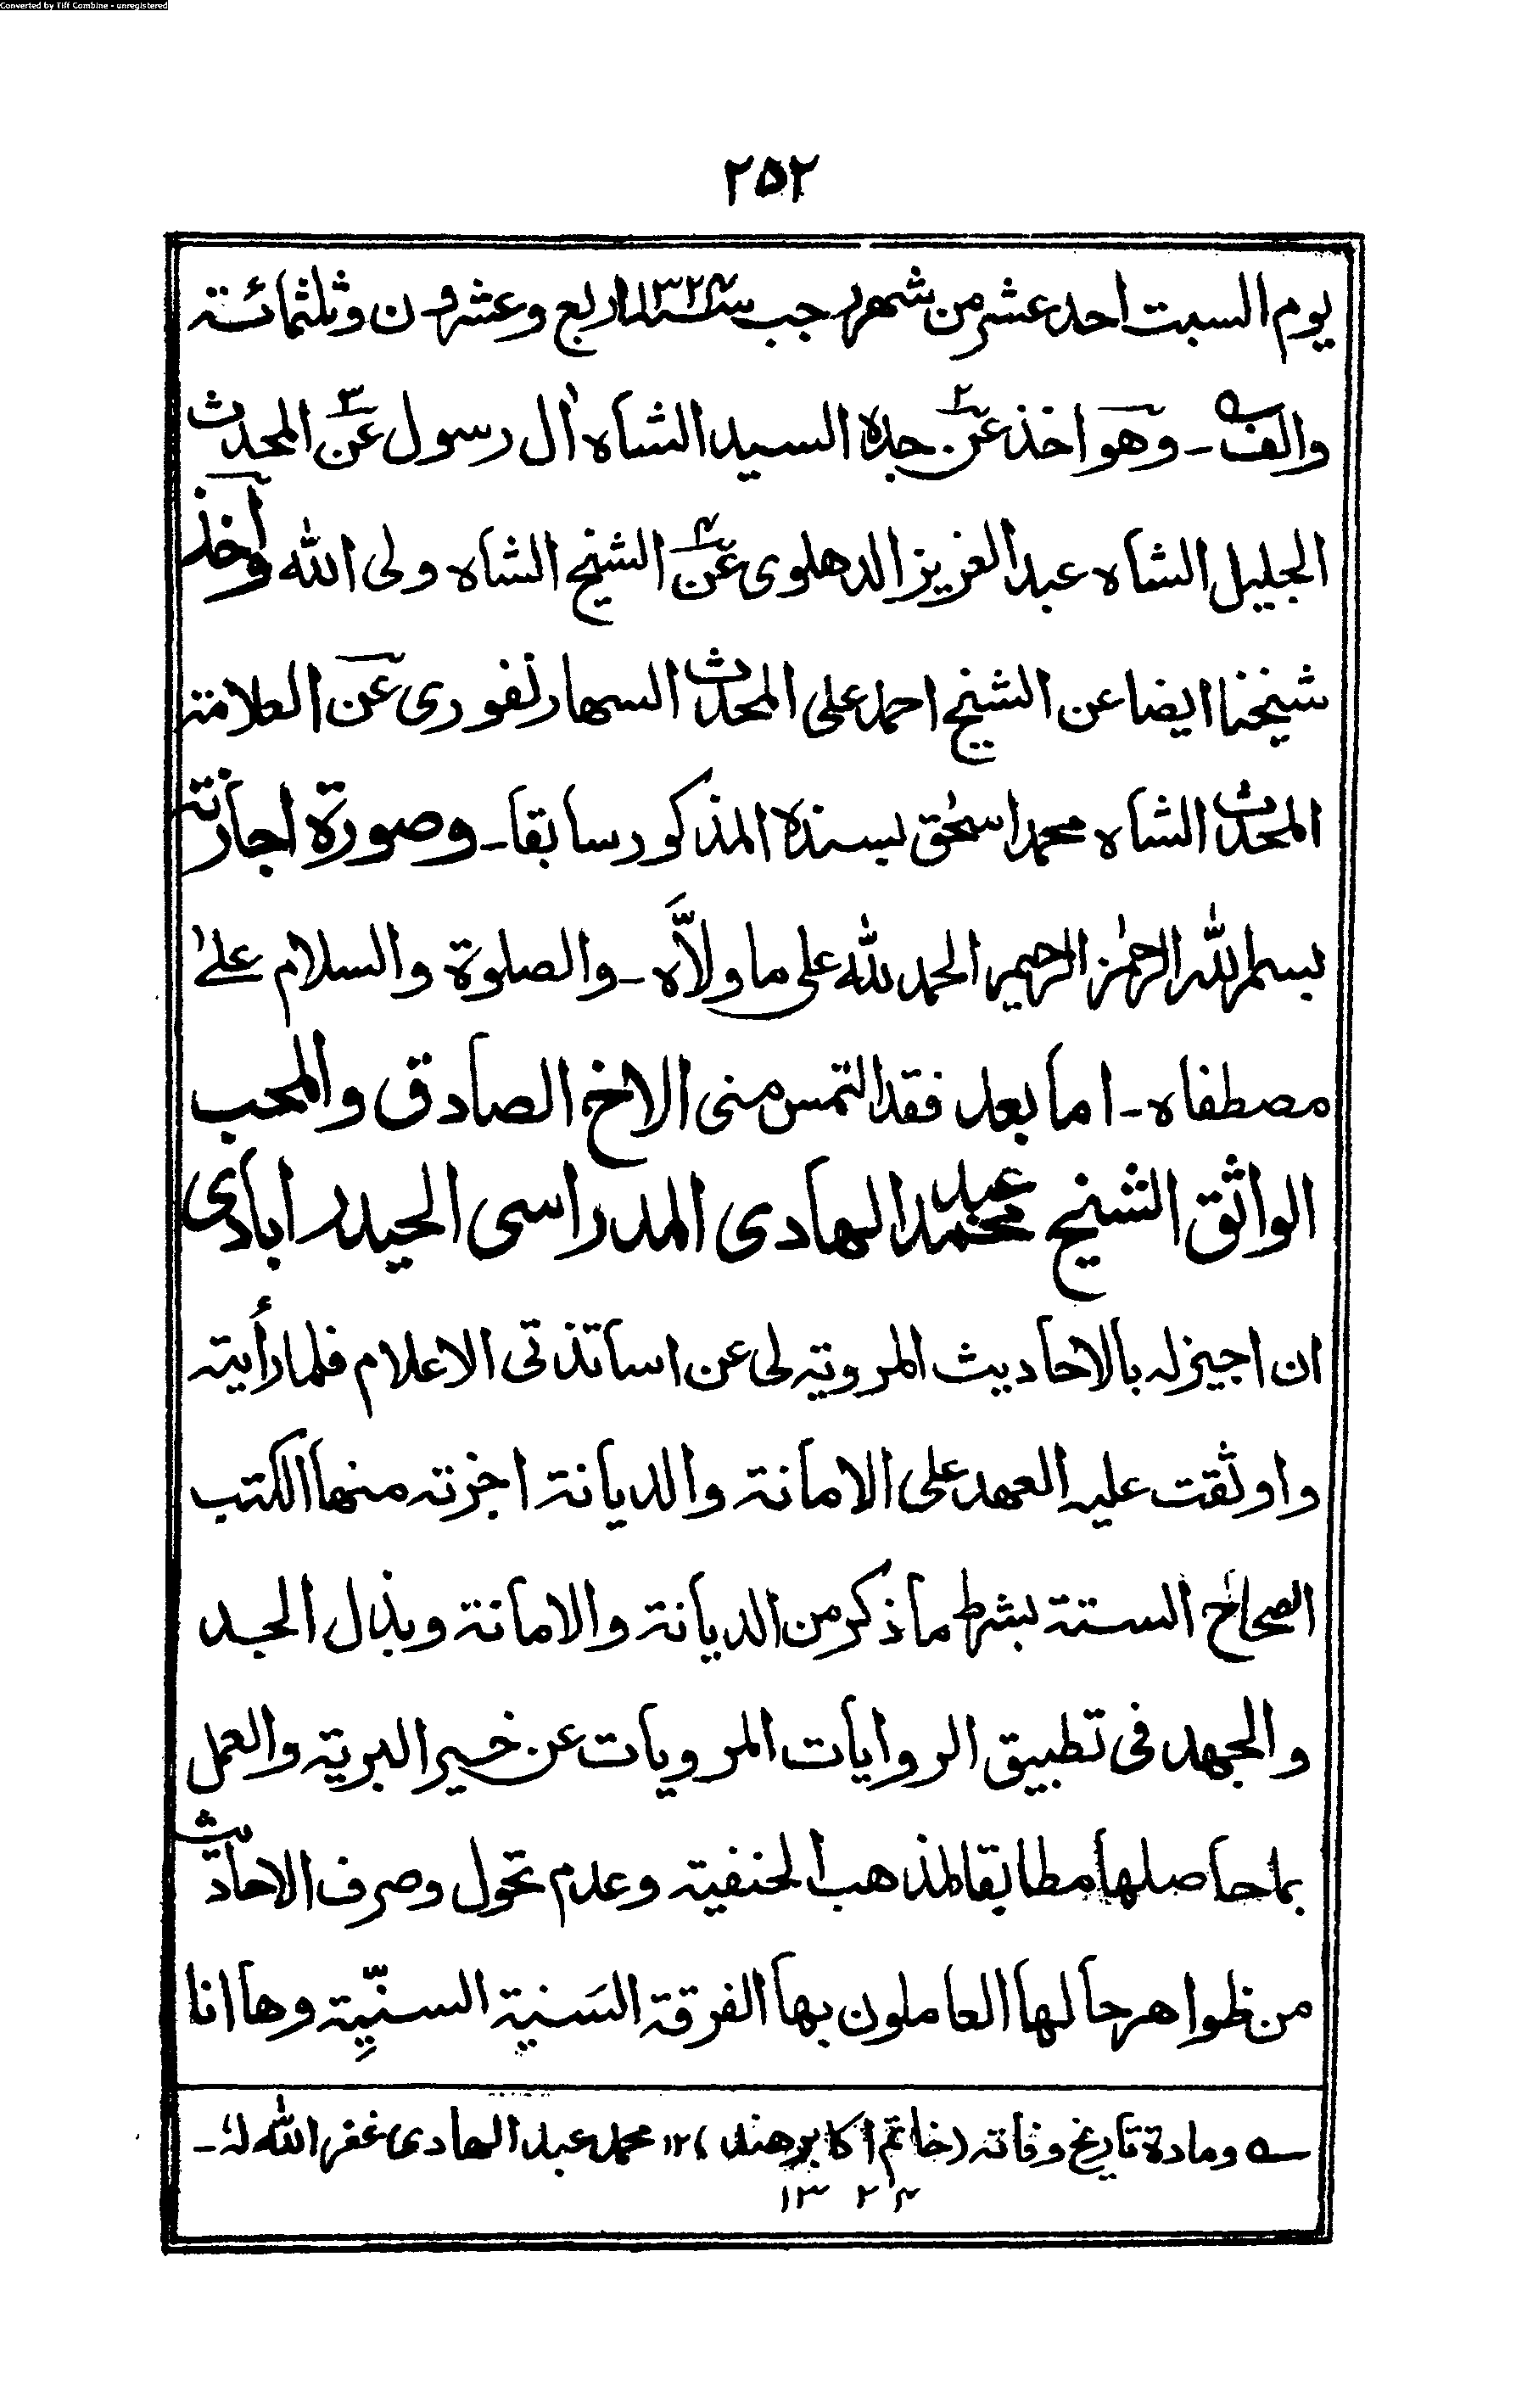 Converted by Tiff Combine - unregistered
٢٥٢
يوم السبت احد عشر من شهر رجب سنه ١٣٢٤ اربع وعشرون وثلثمائة
والف۔ وهو اخذ عن ٢ جده السيد الشاه اٰل رسول عن ٣ المحدث
الجليل الشاه عبد العزيز الدهلوى عن ٤ الشيخ الشاه ولى الله وأخذ
شيخنا ايضا عن الشيخ احمد على المحدث السهارنفورى عن العلامة
المحدث الشاه محمد اسحٰق بسنده المذكور سابقا۔ وصورة اجازته
بسم الله الرحمٰن الرحيم الحمد لله على ما ولّاه۔ والصلوة والسلام علىٰ
مصطفاه۔ اما بعد فقد التمس منى الاخ الصادق والمحب
الواثق الشيخ محمد عبد الهادى المدراسى الحيدرابادى
ان اجيزله بالاحاديث المروية لى عن اساتذتى الاعلام فلما رأيته
واوثقت عليه العهد على الامانة والديانة اجزته منها الكتب
الصحاح الستة بشرط ما ذكر من الديانة والامانة وبذل الجد
والجهد فى تطبيق الروايات المرويات عن خير البرية والعمل
بما حاصلها مطابقا لمذهب الحنفية وعدم تحول وصرف الاحاديث
من ظواهرحالها العاملون بها الفرقة السَنية السنيّة وها انا
ـه ومادة تاريخ وفاته (خاتم اكابر هند) ١٢ محمد عبد الهادى غفر الله لهٗ۔
١٣٢٤